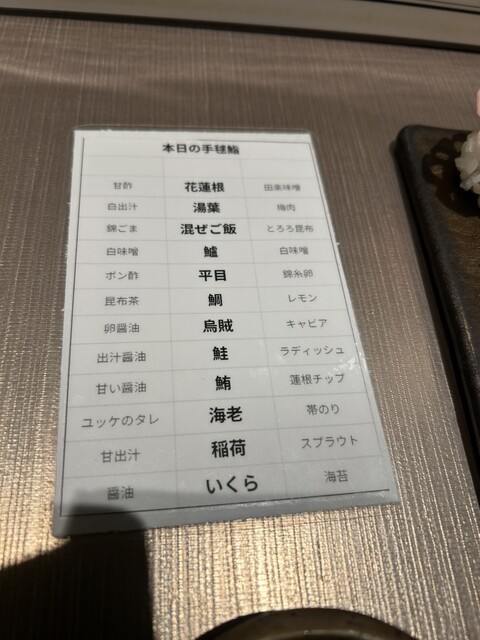 本日の手毬鮨
甘酢 花蓮根 田楽味噌
白出汁 湯葉 梅肉
錦ごま 混ぜご飯 とろろ昆布
白味噌 鱸 白味噌
ポン酢 平目 錦糸卵
昆布茶 鯛 レモン
卵醤油 烏賊 キャビア
出汁醤油 鮭 ラディッシュ
甘い醤油 鮪 蓮根チップ
ユッケのタレ 海老 帯のり
甘出汁 稲荷 スプラウト
醤油 いくら 海苔